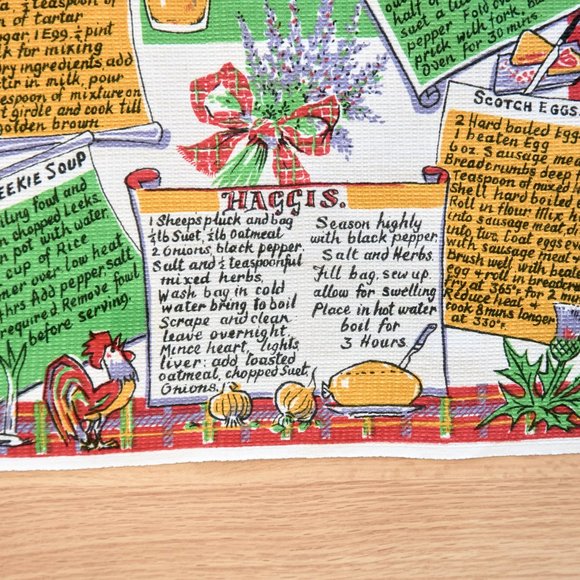 ¾ teaspoon of
of tartar
ugar, 1 Egg. ¼ pint
lk for mixing
ry ingredients add
stir in milk, pour
espoon of mixture on
t girdle and cook till
golden brown
EEKIE SOUP
fowl and
n chopped Leeks.
pot with water.
cup of Rice
mer over low heat,
hrs Add pepper, salt
required. Remove fowl
before serving.
HAGGIS.
1 Sheeps pluck and bag
½lb Suet, ½lb Oatmeal
2 Onions, black pepper,
Salt and ½ teaspoonful
mixed herbs.
Wash bag in cold
water bring to boil
Scrape and clean
leave overnight,
Mince heart, lights
liver: add toasted
oatmeal, chopped Suet,
Onions.
Season highly
with black pepper,
Salt and Herbs.
Fill bag, sew up.
allow for swelling
Place in hot water
boil for
3 Hours
half of
Suet a
pepper Fold over
prick with fork. Ba
oven for 30 mins
SCOTCH EGGS
2 Hard boiled Egg
1 beaten Egg
6 oz Sausage mea
Breadcrumbs deep f
Teaspoon of mixed
Shell hard boiled
Roll in flour. Mix h
into sausage meat, di
into two. Coat eggs ev
with sausage meat
brush well with beate
egg & roll in breadcru
Fry at 365° for 2 m
Reduce heat &
cook 8 mins longer
at 330°.